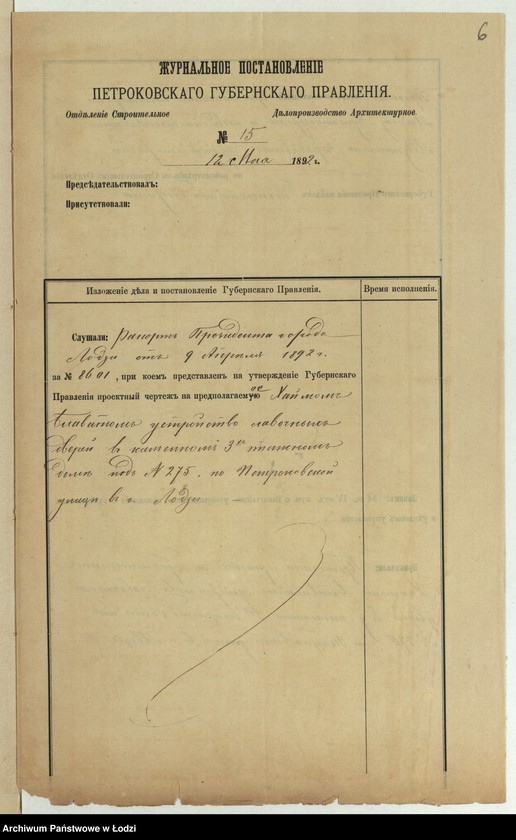 6
ЖУРНАЛЬНОЕ ПОСТАНОВЛЕНІЕ
ПЕТРОКОВСКАГО ГУБЕРНСКАГО ПРАВЛЕНІЯ.
Отдѣленіе Строительное Дѣлопроизводство Архитектурное
№ 15
12 Мая 1892 г.
Предсѣдательствовалъ:
Присутствовали:
Изложеніе дѣла и постановленіе Губернскаго Правленія. Время исполненія.
Слушали: Рапортъ Президента города
Лодзи отъ 9 Апреля 1892 г.
за № 8601, при коемъ представленъ на утвержденіе Губернскаго
Правленія проектный чертежъ на предполагаемое Хаймомъ
устройство лавочныхъ
дверей въ каменномъ 3хъ этажномъ
домѣ подъ № 275. по Петроковской
улицѣ въ г. Лодзи
Archiwum Państwowe w Łodzi